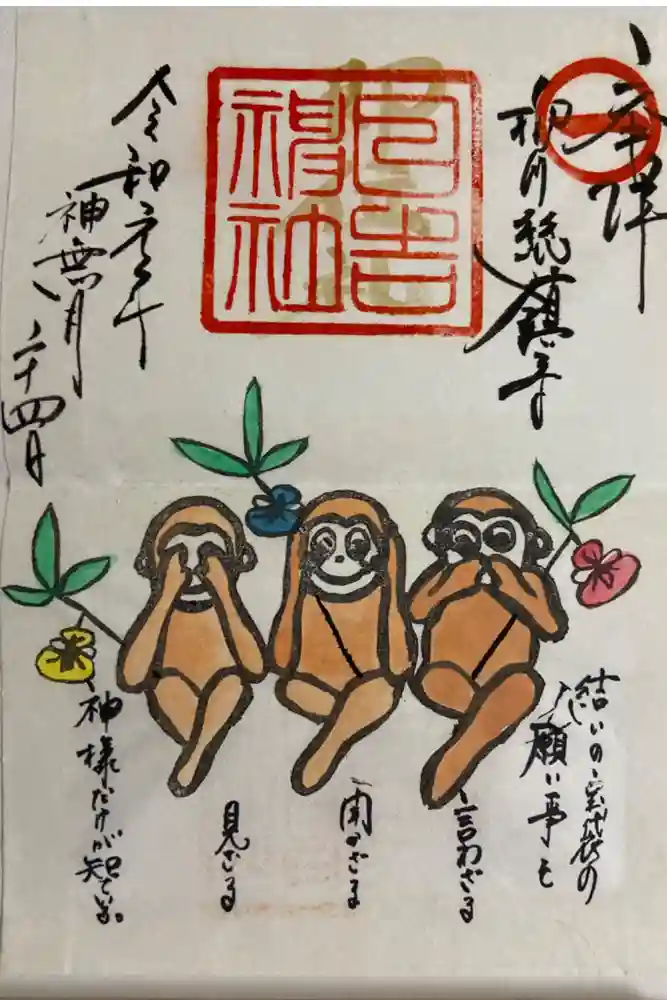 奉拝
柳川総鎮守
日吉神社
結いの宝袋の
願い事も
言わざる
聞かざる
見ざる
神様だけが知っている。
令和元年
神無月
二十四日